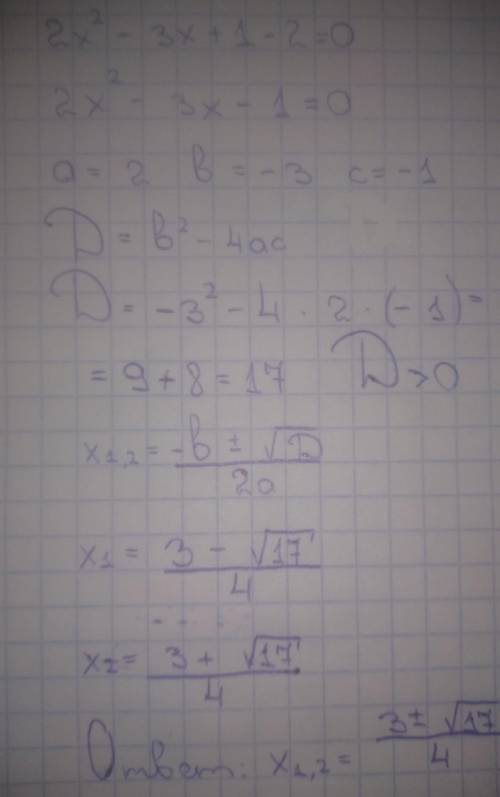 2x² - 3x + 1 - 2 = 0
2x² - 3x - 1 = 0
a = 2 b = -3 c = -1
D = b² - 4ac
D = -3² - 4 · 2 · (-1) =
= 9 + 8 = 17 D > 0
x₁,₂ = (-b ± √D) / 2a
x₁ = (3 - √17) / 4
x₂ = (3 + √17) / 4
Ответ: x₁,₂ = (3 ± √17) / 4